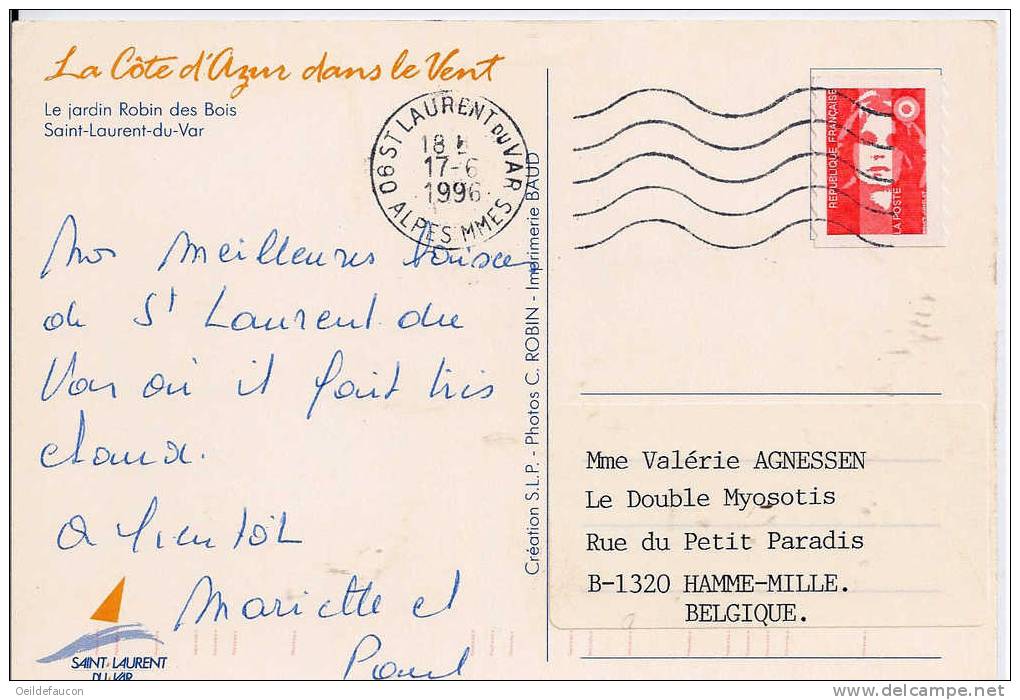 La Côte d'Azur dans le Vent
Le jardin Robin des Bois
Saint-Laurent-du-Var
06 ST LAURENT DU VAR
18 H
17-6
1996
ALPES MMES
REPUBLIQUE FRANÇAISE
LA POSTE
Nos Meilleures baisers
de St Laurent du
Var où il fait très
chaud.
A bientôt
Mariette et
Paul
Création S.L.P. - Photos C. ROBIN - Imprimerie BAUD
Mme Valérie AGNESSEN
Le Double Myosotis
Rue du Petit Paradis
B-1320 HAMME-MILLE.
BELGIQUE.
SAINT LAURENT
DU VAR
Oeildefaucon
delcampe.net